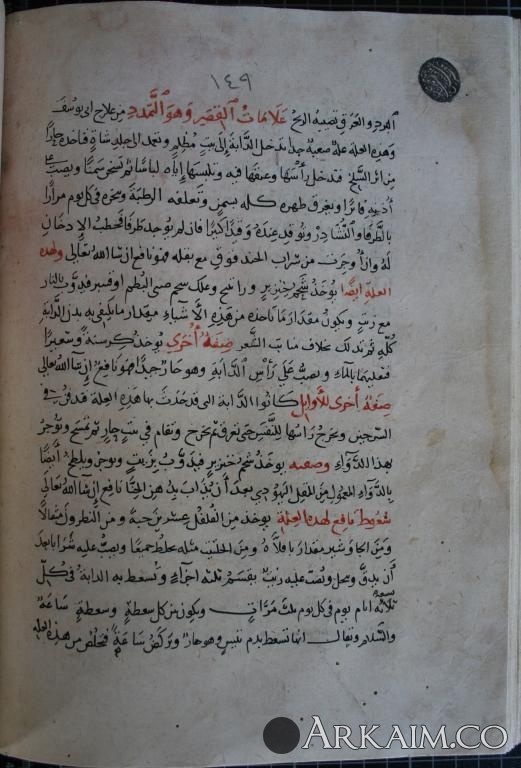 ١٤٩
البرد والعرق تصيبه الريح علامات القصر وهو التمدد من علاج ابي يوسف
وهذه العلة علة صعبة جدا تدخل الدابة إلى بيت مظلم وتعمد الى جلد شاة فتاخذه حارا
من اثر السلخ فتدخل رأسها وعنقها فيه وتلبسها إياه لباسا ثم تسخن سمنا ويصب على
أذنيه فاترا ويعرق ظهره كله بسمن وتعلفه الرطبة وسخره في كل يوم مرارا
بالطرفا والنشادر وتوقد عنده وقدا كثيرا فان لم يوجد طرفا فحطب الا دخان
له وان أوجر من شراب الخندقوقي مع بقله فهو نافع ان شا الله تعالى ولهذه
العلة ايضا يؤخذ شحم خنزير و راتنج وعلك سحم صنى البطم اوقمير فيذوب بالنار
مع زيت ويكون مقدار ما تاخذه من هذه الأشياء مقدار ما يكتفي به بدن الدابة
كله ثم تدلك بخلاف منابت الشعر صفة أخرى يوخذ كرسنة وشعيرا
فتغليهما بالماء ويصب على رأس الدابة وهو حار جيدا فهو نافع ان شا الله تعالى
صفة أخرى للأوايل كانوا الدابة التى قد حدثت بها هذه العلة تدفن في
السرجين ويخرج راسها للتنفس حتى تعرق ثم تخرج وتقام في بيت حار ثم تمسح وتوجر
بهذا الدواء وصفته يوخذ شحم خنزير فيذوب بزيت ويوجر ويلطخ ايضا
بالدواء المعمول من المقل اليهودي بعد أن يذاب بدهن الحنا نافع ان شا الله تعالى
سعوط نافع لهذه العلة يوخذ من الفلفل عشرين حبة و من النطرون مثقالا
ومن الجاوشير مقدار باقلاه ومن الحلتيت مثله يخلط جميعا ويصب عليه شرابا بعد
أن يدق وينخل وتصب عليه زيت يقسم ثلثة اجزاء وتسعط به الدابة في كل
ثلاثة ايام يوم في كل يوم ثلث مرات ويكون بين كل سعطة وسعطة ساعة
والسلام ويقال انها تسعط بدم تيس وهو حار ويركض ساعة فتخلص من هذه العلة
ARKAIM.CO